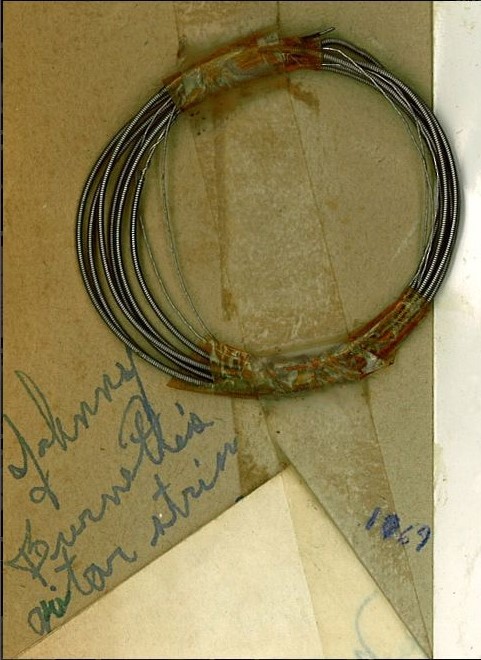 Johnny
Burnette's
uitar strin
1969